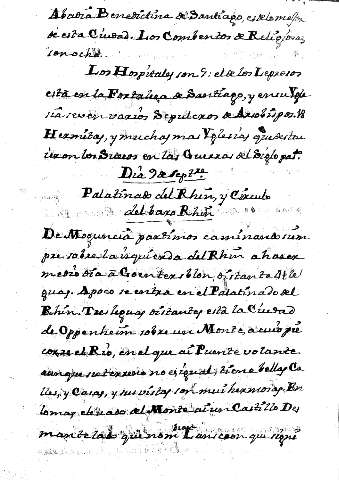 Abadia Benedictina de Santiago, es de lo mejor
de esta Ciudad. Los Combentos de Religiosas
son ocho.
Los Hospitales son 9: el de los Leprosos
está en la Fortaleza de Santiago, y en su Ygle
sia se ven varios Sepulcros de Arzobispos. 18
Hermitas, y muchas mas Yglesias que destru
ieron los Suecos en las Guerras del Siglo pas.
Dia 9 de Sept.re
Palatinado del Rhin, y Circulo
del baxo Rhin
De Moguncia partimos caminando siem
pre sobre la izquierda del Rhin a hacer
medio dia à Goentersblon distante 4 le
guas. A poco se entra en el Palatinado del
Rhin. Tres leguas distantes està la Ciudad
de Oppenheim sobre un Monte, a cuio pie
corre el Rio, en el que ai Puente volante
aunque su terreno no es igual, tiene bellas Ca
lles, y Casas, y sus vistas son mui hermosas. En
lo mas elevado del Monte ai un Castillo Des
mantelado que nom Lanscron que signi